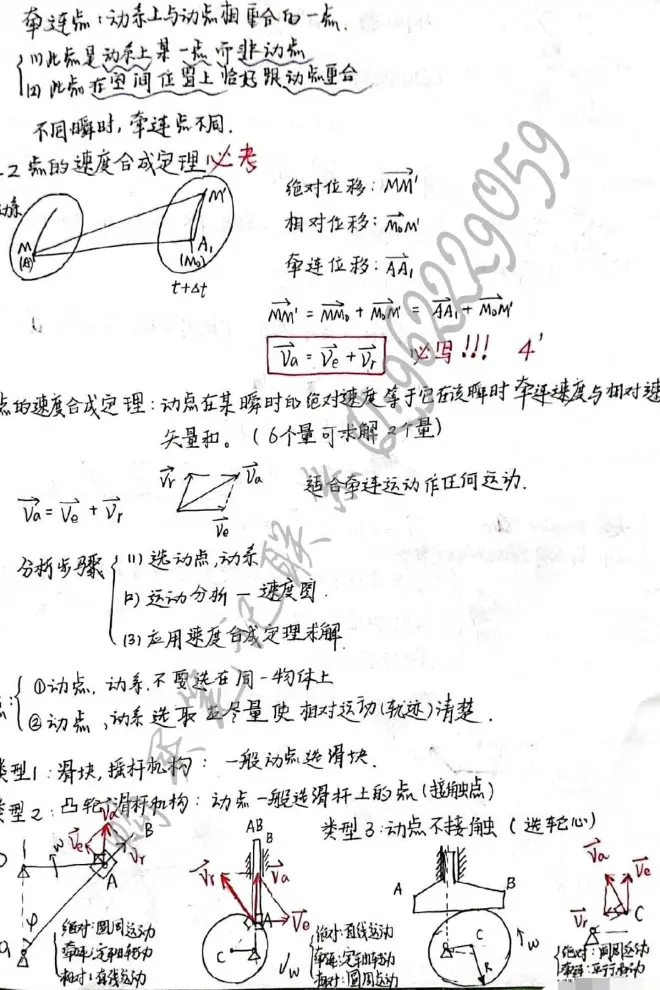 牵连点：动系上与动点相重合的一点.
(1) 此点是动系上某一点而非动点
(2) 此点在空间位置上恰好跟动点重合
不同瞬时，牵连点不同.
-2 点的速度合成定理 必考
动系
M (A)
M'
A₁ (M₀)
t+Δt
绝对位移：MM'
相对位移：M₀M'
牵连位移：AA₁
MM' = MM₀ + M₀M' = AA₁ + M₀M'
Va = Ve + Vr 必写!!! 4'
点的速度合成定理：动点在某瞬时的绝对速度等于它在该瞬时牵连速度与相对速
矢量和。(6个量可求解2个量)
Va = Ve + Vr
Vr Va
Ve
适合牵连运动作任何运动.
分析步骤
(1) 选动点,动系
(2) 运动分析 — 速度图.
(3) 应用速度合成定理求解
点：
①动点, 动系.不要选在同一物体上
②动点,动系选取应尽量使相对运动(轨迹)清楚.
类型1：滑块,摇杆机构：一般动点选滑块.
类型2：凸轮,滑杆机构：动点一般选滑杆上的点(接触点)
类型3:动点不接触(选轮心)
Va
Ve
Vr
B
ω
A
φ
绝对:圆周运动
牵连:定轴转动
相对:直线运动
AB
B
Vr
Va
Ve
A
C
ω
绝对:直线运动
牵连:定轴转动
相对:圆周运动
A
B
C
R
ω
Va
Ve
Vr
C
绝对:圆周运动
牵连:平行移动
购买笔记联学61962229059